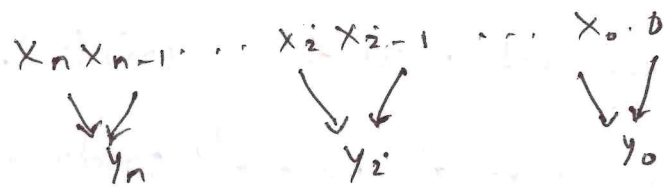 Xn Xn-1 · · · Xi Xi-1 · · · X0 . 0
Yn Yi Y0